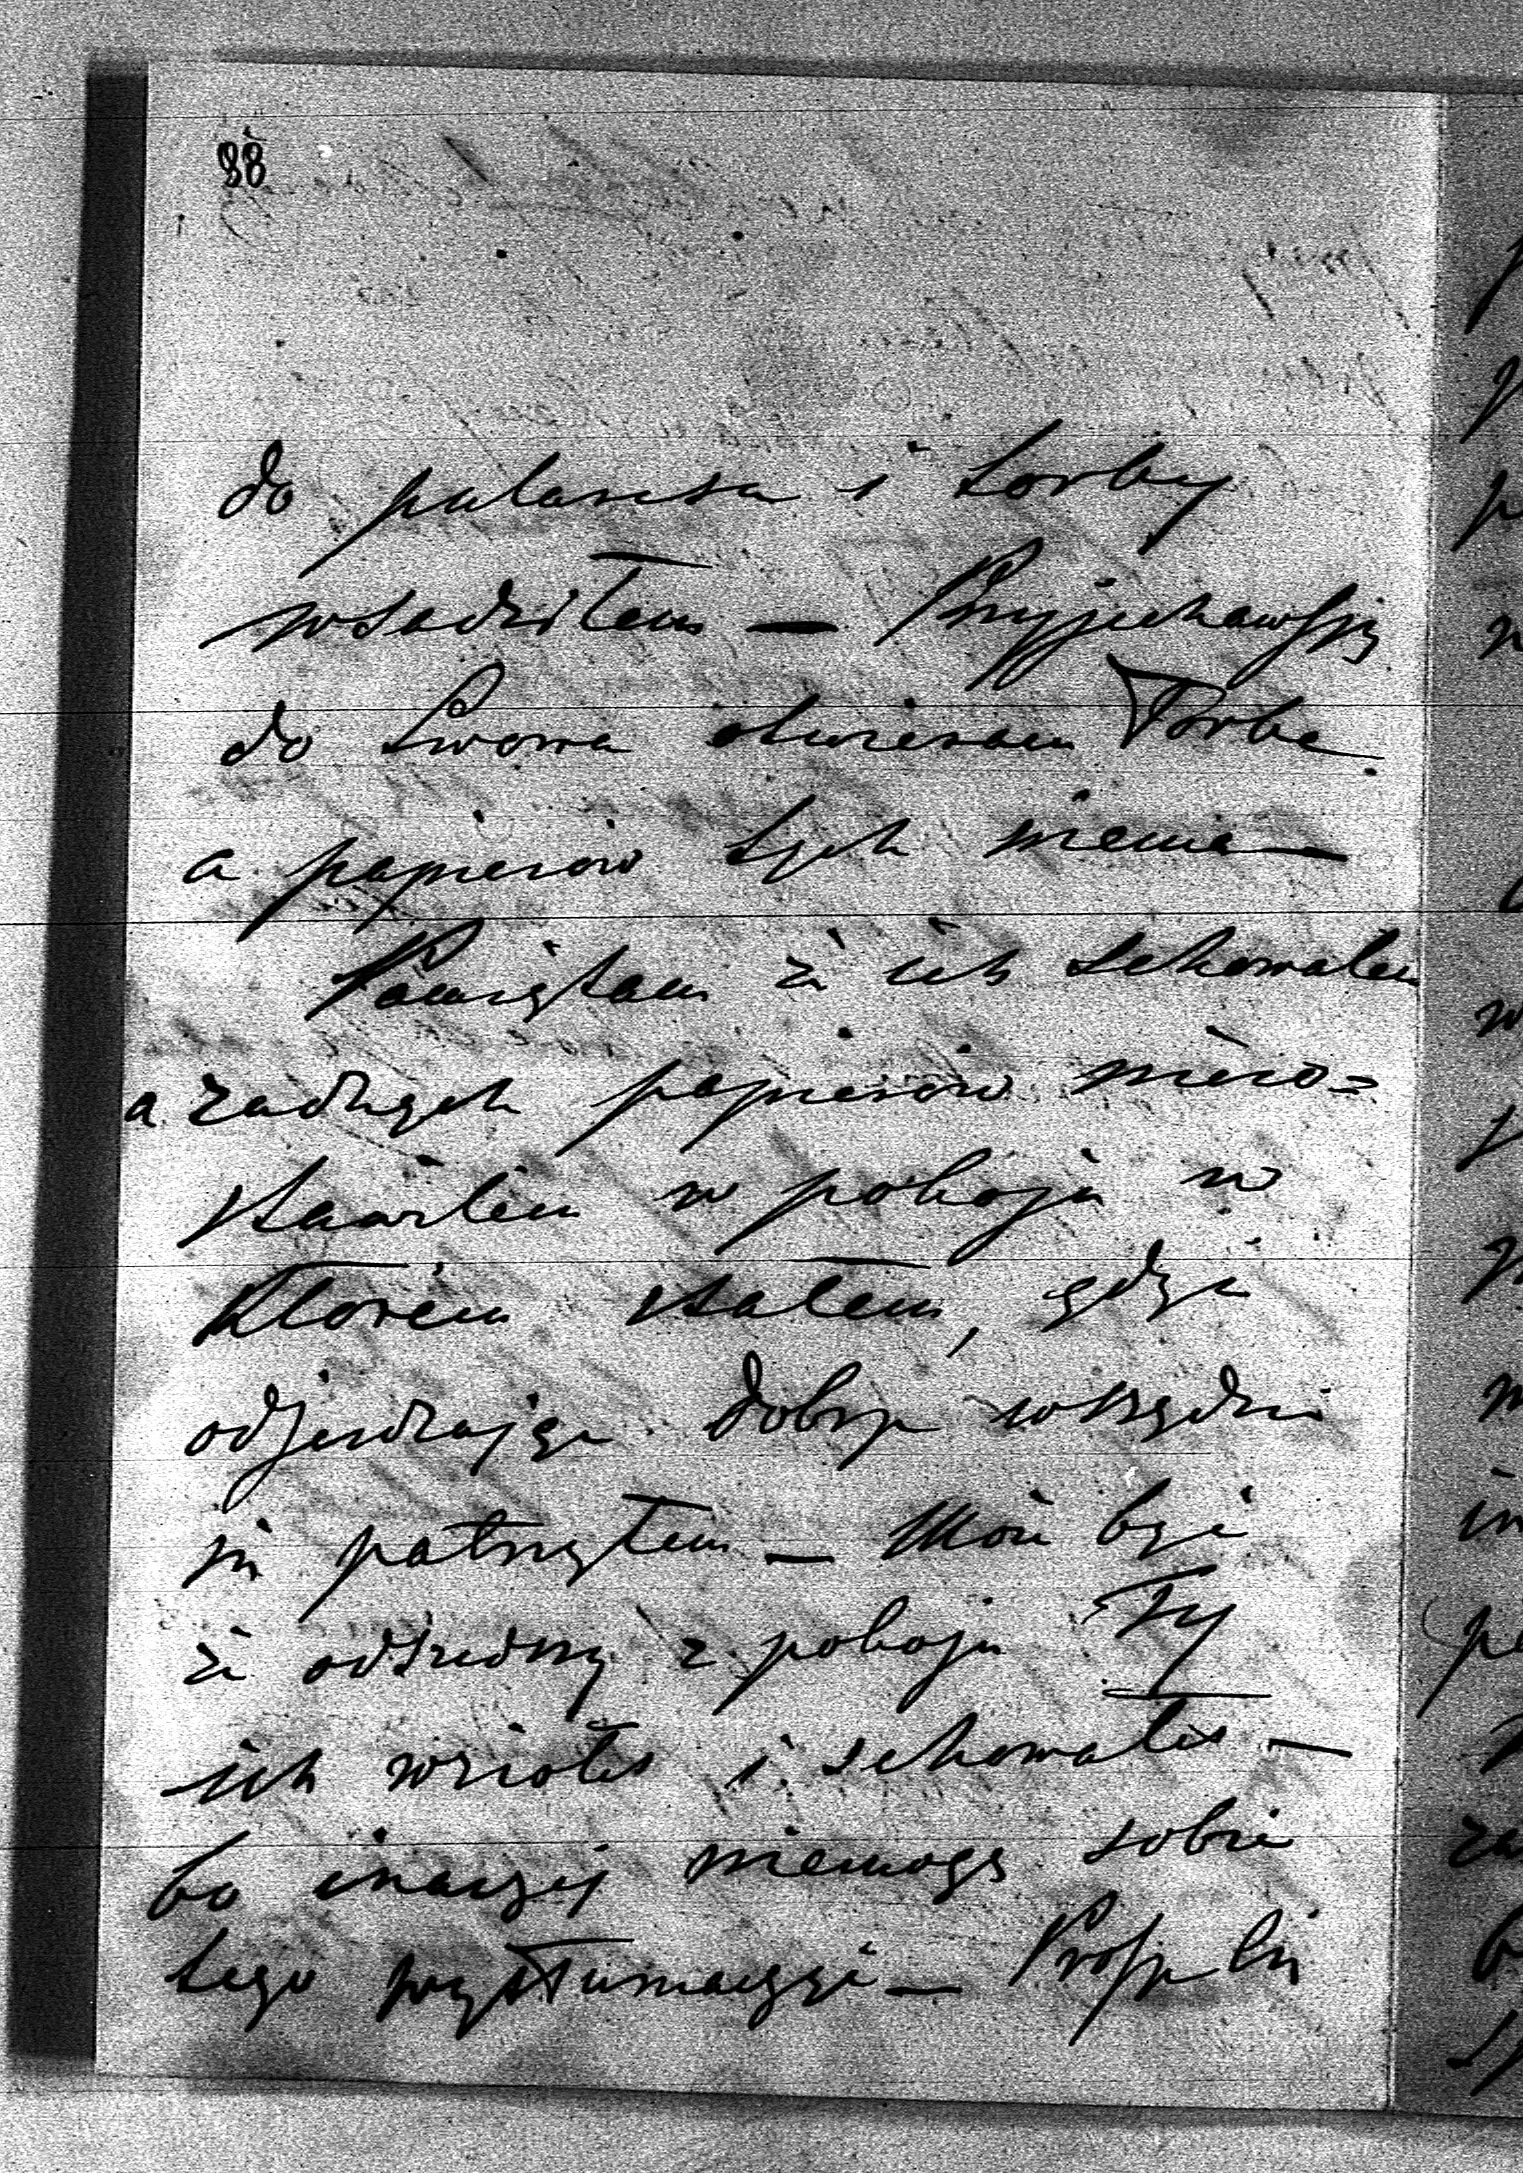 88
do pularesa i torby
wsadziłem — Przyjechawszy
do Lwowa otwieram Torbę
a papierów tych niema —
Pamiętam że ich schowałem
a żadnych papierów niezo=
stawiłem w pokoju w
Którem stałem, gdyż
odjeżdżając dobrze wszędzie
się patrzyłem — Może być
że odszedłszy z pokoju Ty
ich wziołeś i schowałeś —
bo inaczej niemogę sobie
tego wytłumaczyć — Proszę Cię